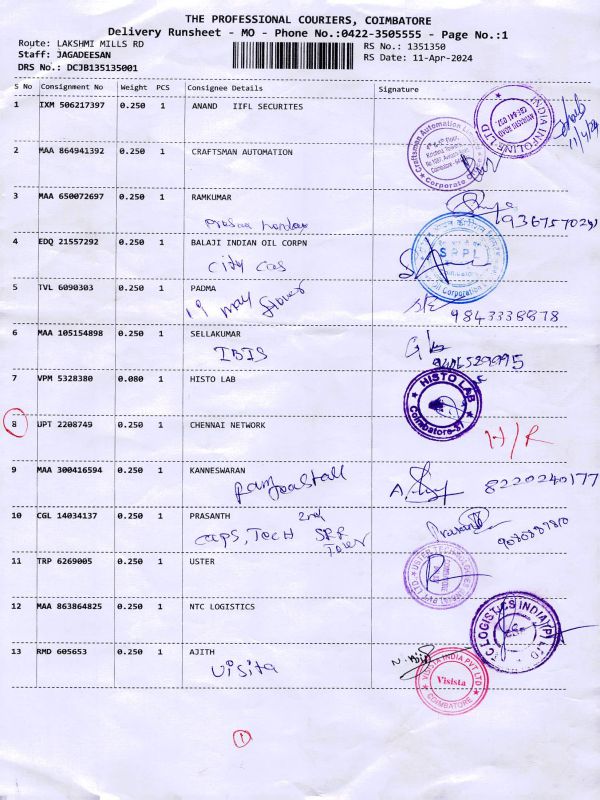 THE PROFESSIONAL COURIERS, COIMBATORE
Delivery Runsheet - MO - Phone No.:0422-3505555 - Page No.:1
Route: LAKSHMI MILLS RD
Staff: JAGADEESAN
DRS No.: DCJB135135001
RS No.: 1351350
RS Date: 11-Apr-2024
S No Consignment No Weight PCS Consignee Details Signature
1 IXM 506217397 0.250 1 ANAND IIFL SECURITES
INDIA INFOLINE LTD
11/4/24
2 MAA 864941392 0.250 1 CRAFTSMAN AUTOMATION
Craftsman Automation
Corporate
3 MAA 650072697 0.250 1 RAMKUMAR
4 EDQ 21557292 0.250 1 BALAJI INDIAN OIL CORPN
City Gas
SRPL
Oil Corporation
5 TVL 6090303 0.250 1 PADMA
19 may flower
9843338878
6 MAA 105154898 0.250 1 SELLAKUMAR
IBIS
7 VPM 5328380 0.080 1 HISTO LAB
HISTO LAB
Coimbatore-37
8 UPT 2208749 0.250 1 CHENNAI NETWORK
H/R
9 MAA 300416594 0.250 1 KANNESWARAN
8220240177
10 CGL 14034137 0.250 1 PRASANTH
2nd
CAPS, TECH SRR
Tower
Prasanth
11 TRP 6269005 0.250 1 USTER
USTER TECHNOLOGIES
12 MAA 863864825 0.250 1 NTC LOGISTICS
C LOGISTICS INDIA(P) LTD
13 RMD 605653 0.250 1 AJITH
Visita
VISISTA INDIA PVT LTD
Visista
COIMBATORE
1